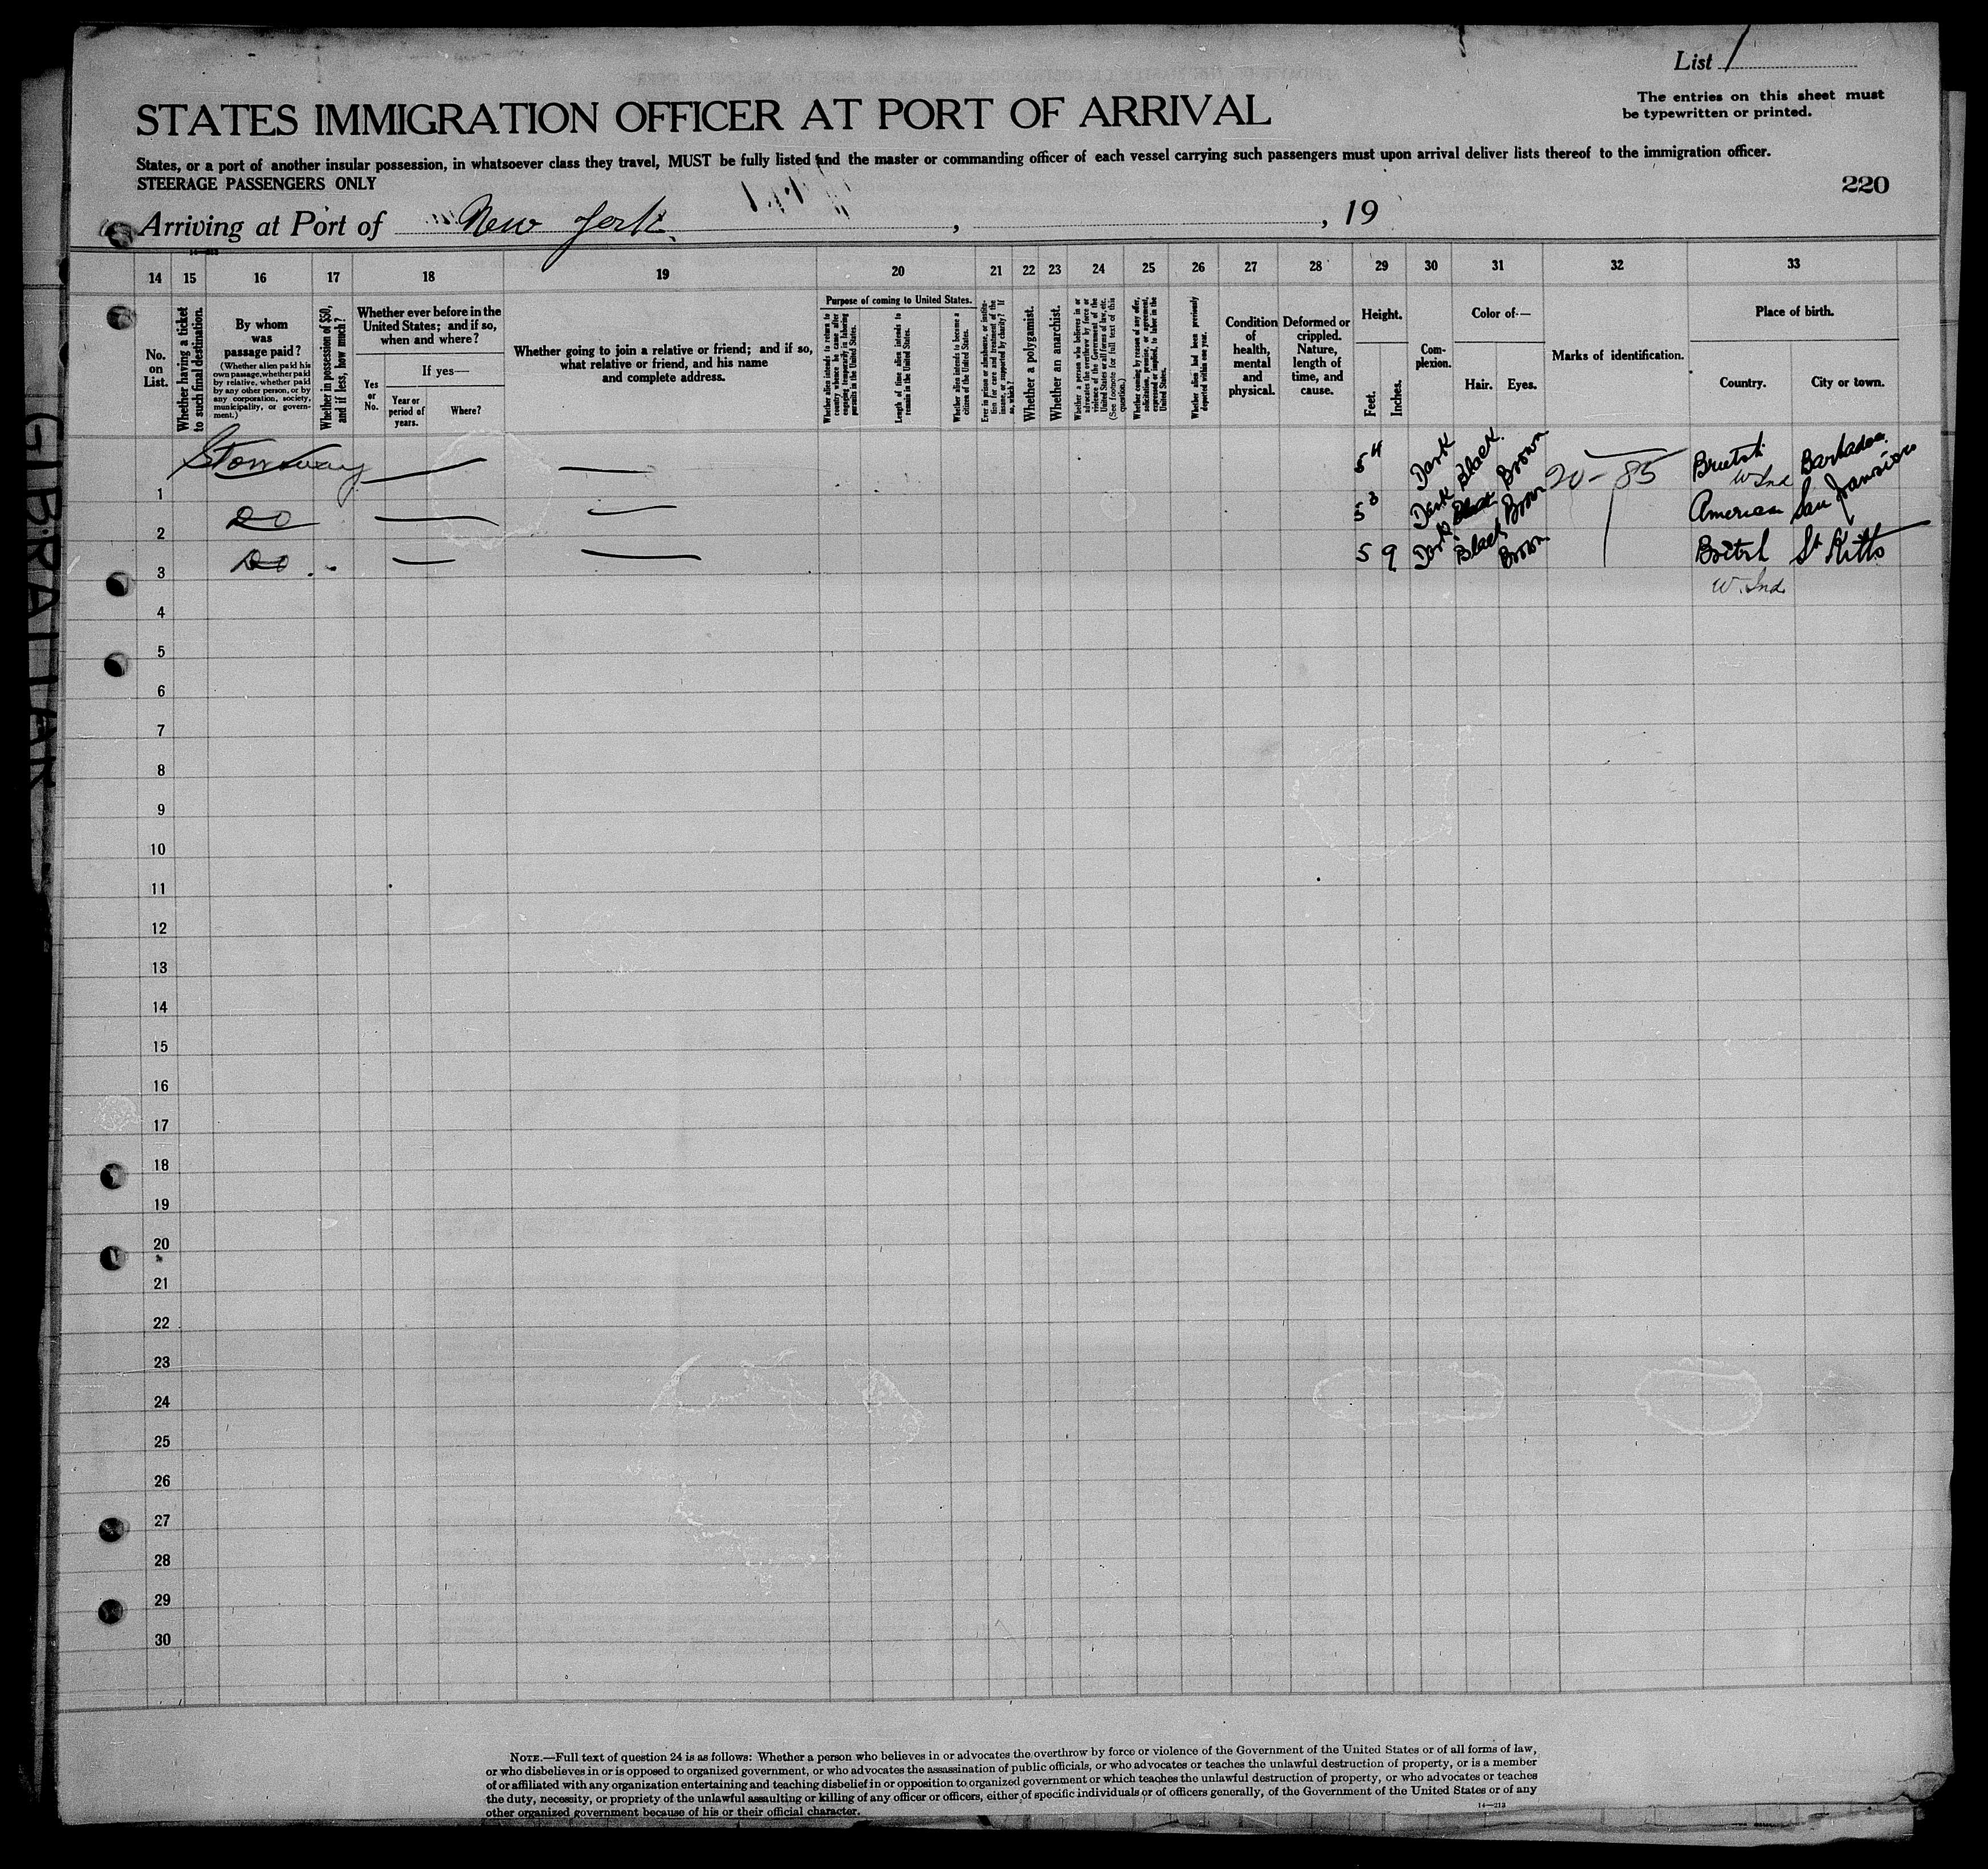 List 1
STATES IMMIGRATION OFFICER AT PORT OF ARRIVAL
The entries on this sheet must
be typewritten or printed.
States, or a port of another insular possession, in whatsoever class they travel, MUST be fully listed and the master or commanding officer of each vessel carrying such passengers must upon arrival deliver lists thereof to the immigration officer.
STEERAGE PASSENGERS ONLY
220
Arriving at Port of New York, , 19
14 15 16 17 18 19 20 21 22 23 24 25 26 27 28 29 30 31 32 33
No. on List.
Whether having a ticket to such final destination.
By whom was passage paid?
(Whether alien paid his own passage, whether paid by relative, whether paid by any other person, or by any corporation, society, municipality, or government.)
Whether in possession of $50, and if less, how much?
Whether ever before in the United States; and if so, when and where?
Yes or No.
If yes—
Year or period of years.
Where?
Whether going to join a relative or friend; and if so, what relative or friend, and his name and complete address.
Purpose of coming to United States.
Whether alien intends to return to country whence he came after engaging temporarily in laboring pursuits in the United States.
Length of time alien intends to remain in the United States.
Whether alien intends to become a citizen of the United States.
Ever in prison or almshouse, or institution for care and treatment of the insane, or supported by charity? If so, which?
Whether a polygamist.
Whether an anarchist.
Whether a person who believes in or advocates the overthrow by force or violence of the Government of the United States or all forms of law, etc. (See footnote for full text of this question.)
Whether coming by reason of any offer, solicitation, promise, or agreement, expressed or implied, to labor in the United States.
Whether alien had been previously deported within one year.
Condition of health, mental and physical.
Deformed or crippled. Nature, length of time, and cause.
Height.
Feet.
Inches.
Complexion.
Color of—
Hair.
Eyes.
Marks of identification.
Place of birth.
Country.
City or town.
1 Stowaway — — 5 4 Dark Black Brown 20-85 British W Ind Barbados
2 DO — — 5 8 Dark Black Brown American San Francisco
3 DO — — 5 9 Dark Black Brown British St Kitts
W. Ind
4
5
6
7
8
9
10
11
12
13
14
15
16
17
18
19
20
21
22
23
24
25
26
27
28
29
30
NOTE.—Full text of question 24 is as follows: Whether a person who believes in or advocates the overthrow by force or violence of the Government of the United States or of all forms of law,
or who disbelieves in or is opposed to organized government, or who advocates the assassination of public officials, or who advocates or teaches the unlawful destruction of property, or is a member
of or affiliated with any organization entertaining and teaching disbelief in or opposition to organized government or which teaches the unlawful destruction of property, or who advocates or teaches
the duty, necessity, or propriety of the unlawful assaulting or killing of any officer or officers, either of specific individuals or of officers generally, of the Government of the United States or of any
other organized government because of his or their official character.
14—213
GIBRALTAR